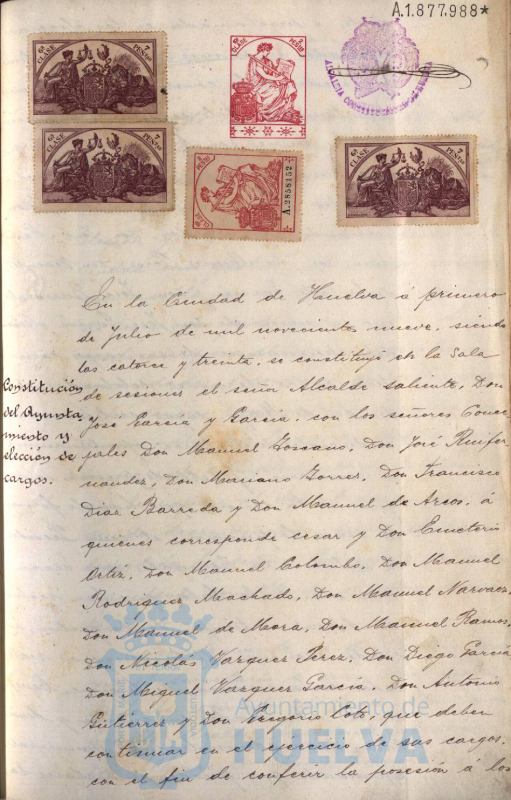 A.1.877,988*
6ª CLASE 7 PESETAS
6ª CLASE 7 PESETAS
6ª CLASE 7 PESETAS
CLASE PESETAS
A.2858152
ALCALDIA
En la Ciudad de Huelva á primero
de Julio de mil novecientos nueve, siendo
las catorce y treinta, se constituyó en la Sala
de sesiones el señor Alcalde saliente, Don
José García y García, con los señores Conce-
pales Don Manuel Toscano, Don José Ruifer-
nandez, Don Mariano Torres, Don Francisco
Diaz Barreda y Don Manuel de Arcos, á
quienes corresponde cesar y Don Emeterio
Ortiz, Don Manuel Colombo, Don Manuel
Rodriguez Machado, Don Manuel Narvaez,
Don Manuel de Mora, Don Manuel Ramos,
Don Nicolás Vazquez Perez, Don Diego García
Don Miguel Vazquez García, Don Antonio
Gutierrez y Don Gregorio Coto, que deben
continuar en el ejercicio de sus cargos,
con el fin de conferir la posesión á los
Constitución
del Ayunta-
miento y
elección de
cargos.
Ayuntamiento de
HUELVA